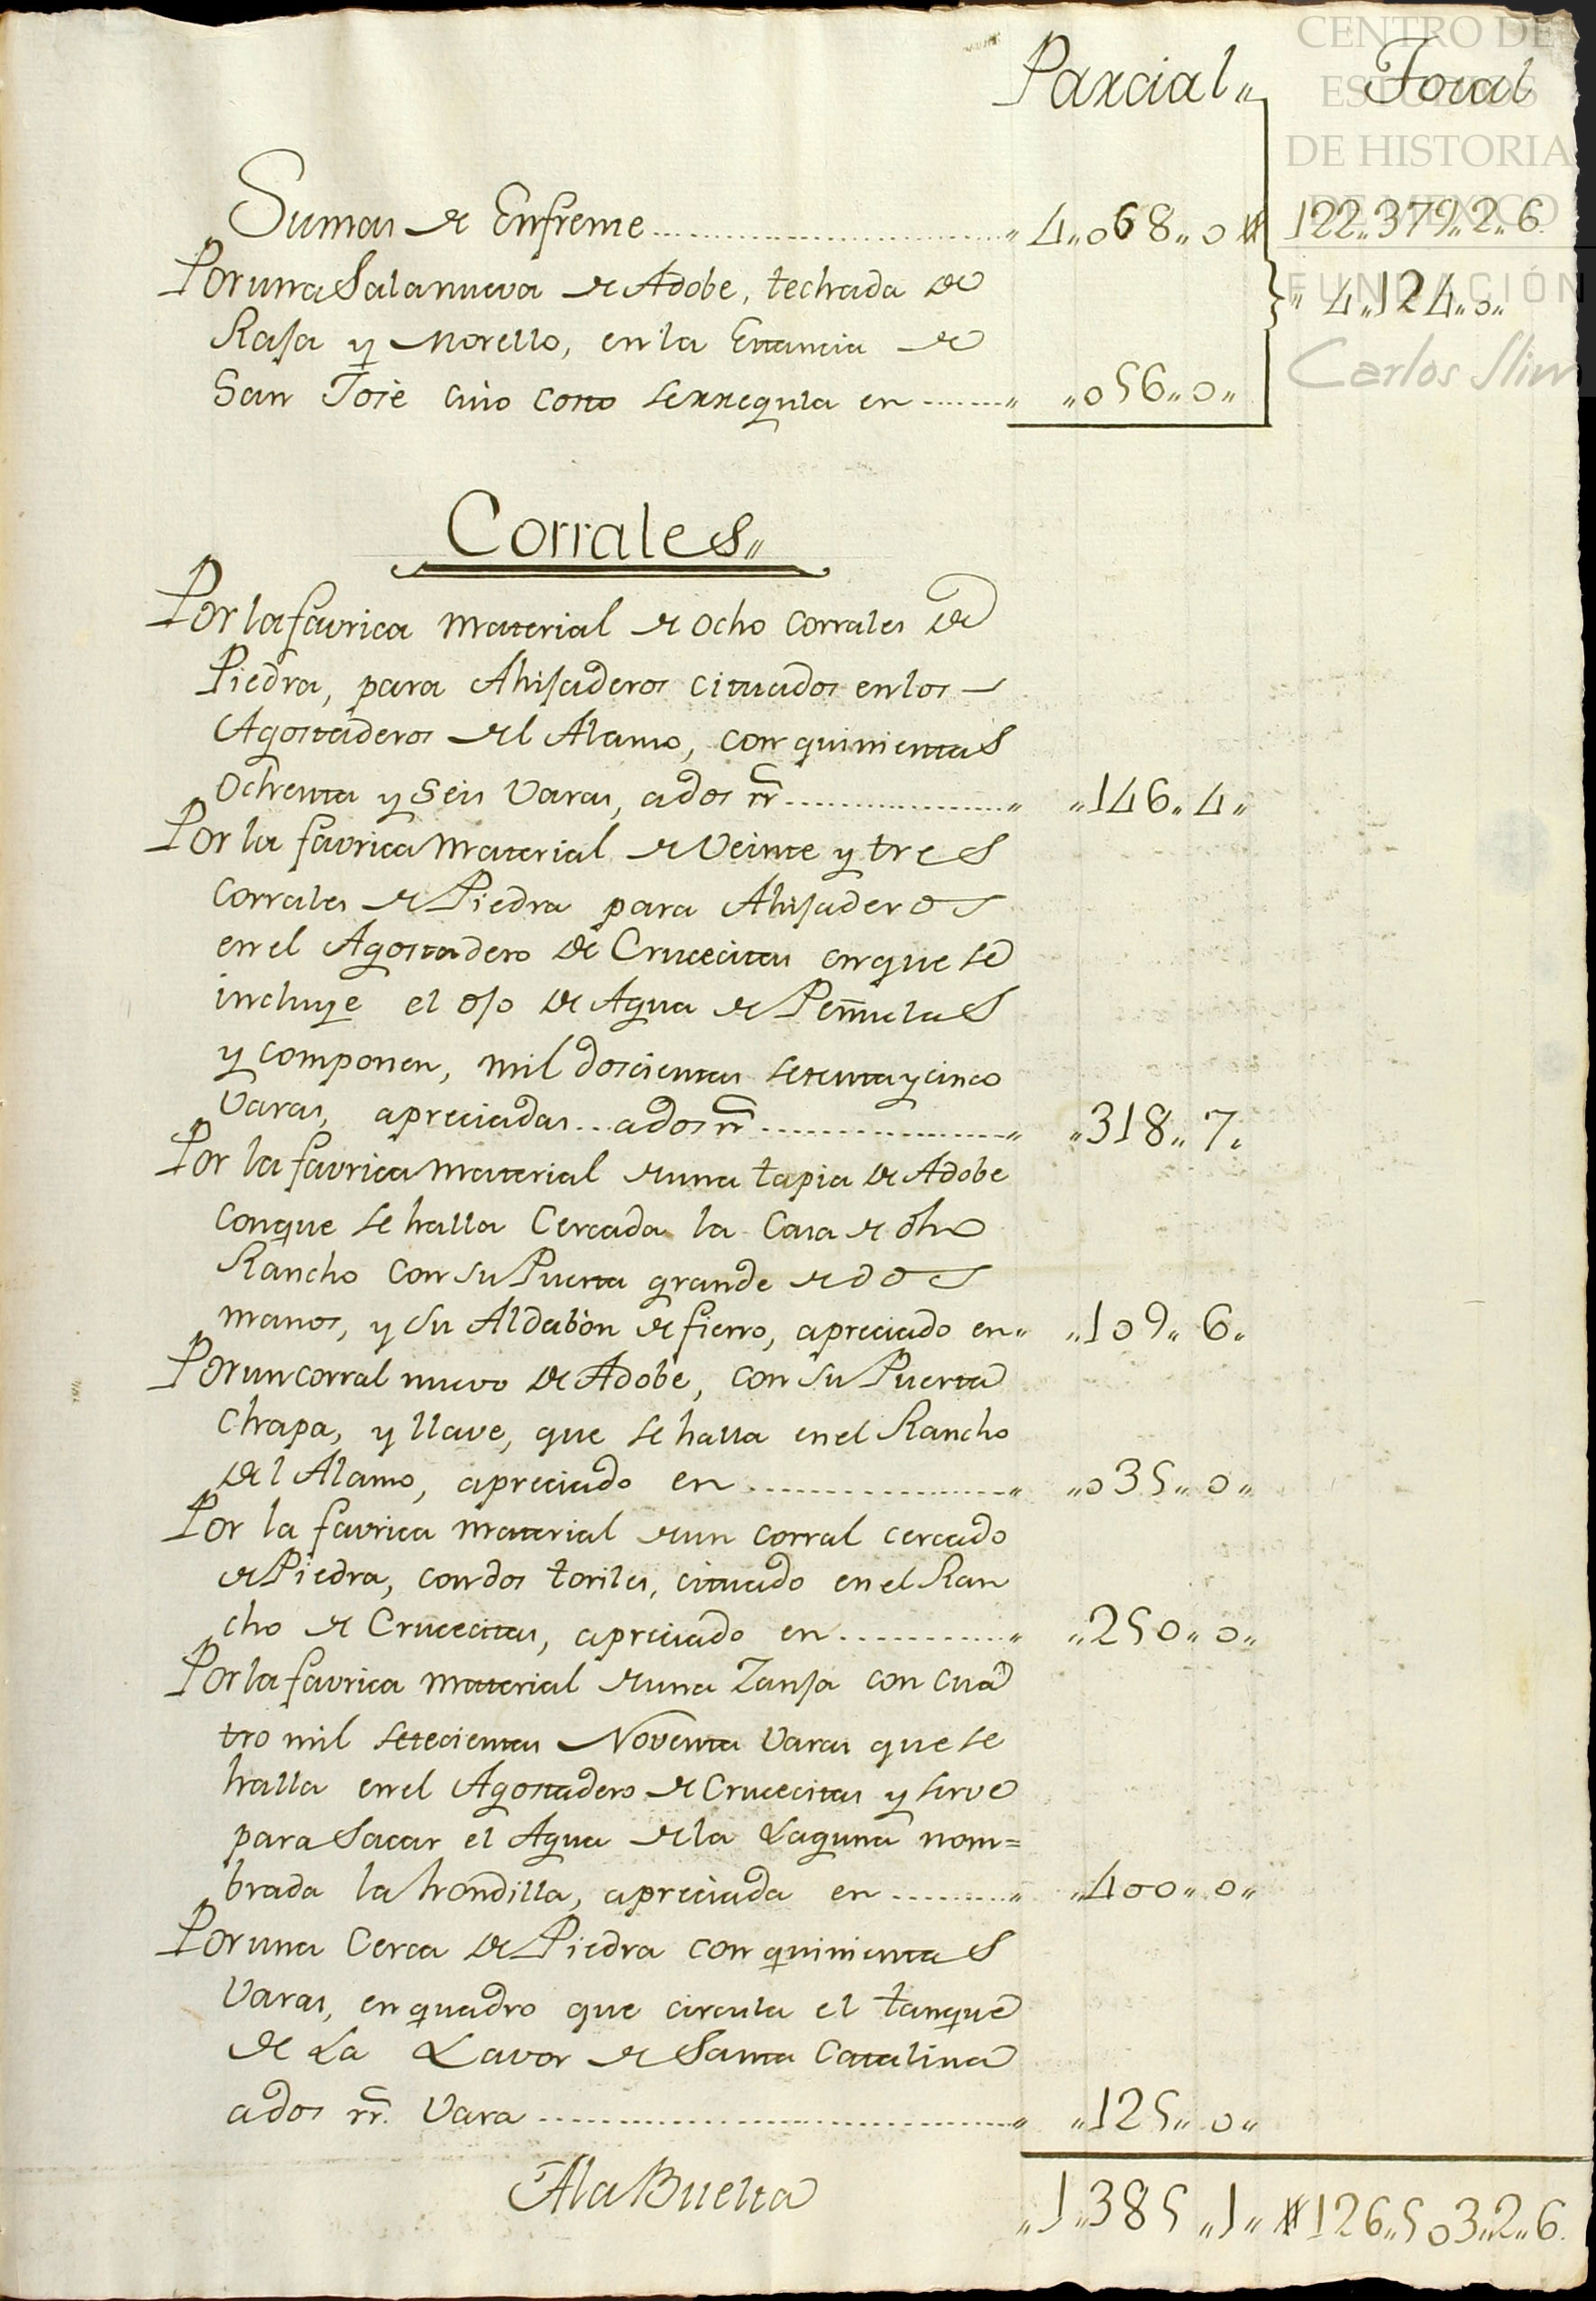 CENTRO DE
ESTUDIOS
DE HISTORIA
DE MEXICO
FUNDACIÓN
Carlos Slim
Parcial„ Total
Sumas de Enfrente „ 4„068„0 122„379„2„6.
Por una Sala nueva de Adobe, techrada de „ 4„124„0„
Raja y Morello, en la Estancia de
San José cuio costo se rregula en „ „056„0„
Corrales„
Por la favrica material de ocho corrales de
Piedra, para Ahijaderos cituados en los
Agostaderos del Alamo, con quinientas
Ochenta y Seis Varas, a dos rr „ „146„4„
Por la favrica material de Veinte y tres
Corrales de Piedra para Ahijaderos
en el Agostadero de Crucecitas en que se
incluye el ojo de Agua de Peñuelas
y componen, mil doscientas setenta y cinco
Varas, apreciadas a dos rr „ „318„7„
Por la favrica material de una tapia de Adobe
con que se halla Cercada la Casa de dho
Rancho con su Puerta grande de dos
manos, y su Aldabón de fierro, apreciado en„ „109„6„
Por un corral nuevo de Adobe, con su Puerta
Chapa, y llave, que se halla en el Rancho
del Alamo, apreciado en „ „035„0„
Por la favrica material de un corral cercado
de Piedra, con dos toriles, cituado en el Ran
cho de Crucecitas, apreciado en „ „250„0„
Por la favrica material de una Zanja con cua
tro mil setecientas Noventa Varas que se
halla en el Agostadero de Crucecitas y sirve
para Sacar el Agua de la Laguna nom=
brada la hondilla, apreciada en „ „400„0„
Por una Cerca de Piedra con quinientas
Varas, en quadro que circula el tanque
de La Lavor de Santa Catalina
a dos rr. Vara „ „125„0„
A la Buelta „1„385„1„ 126„503„2„6.